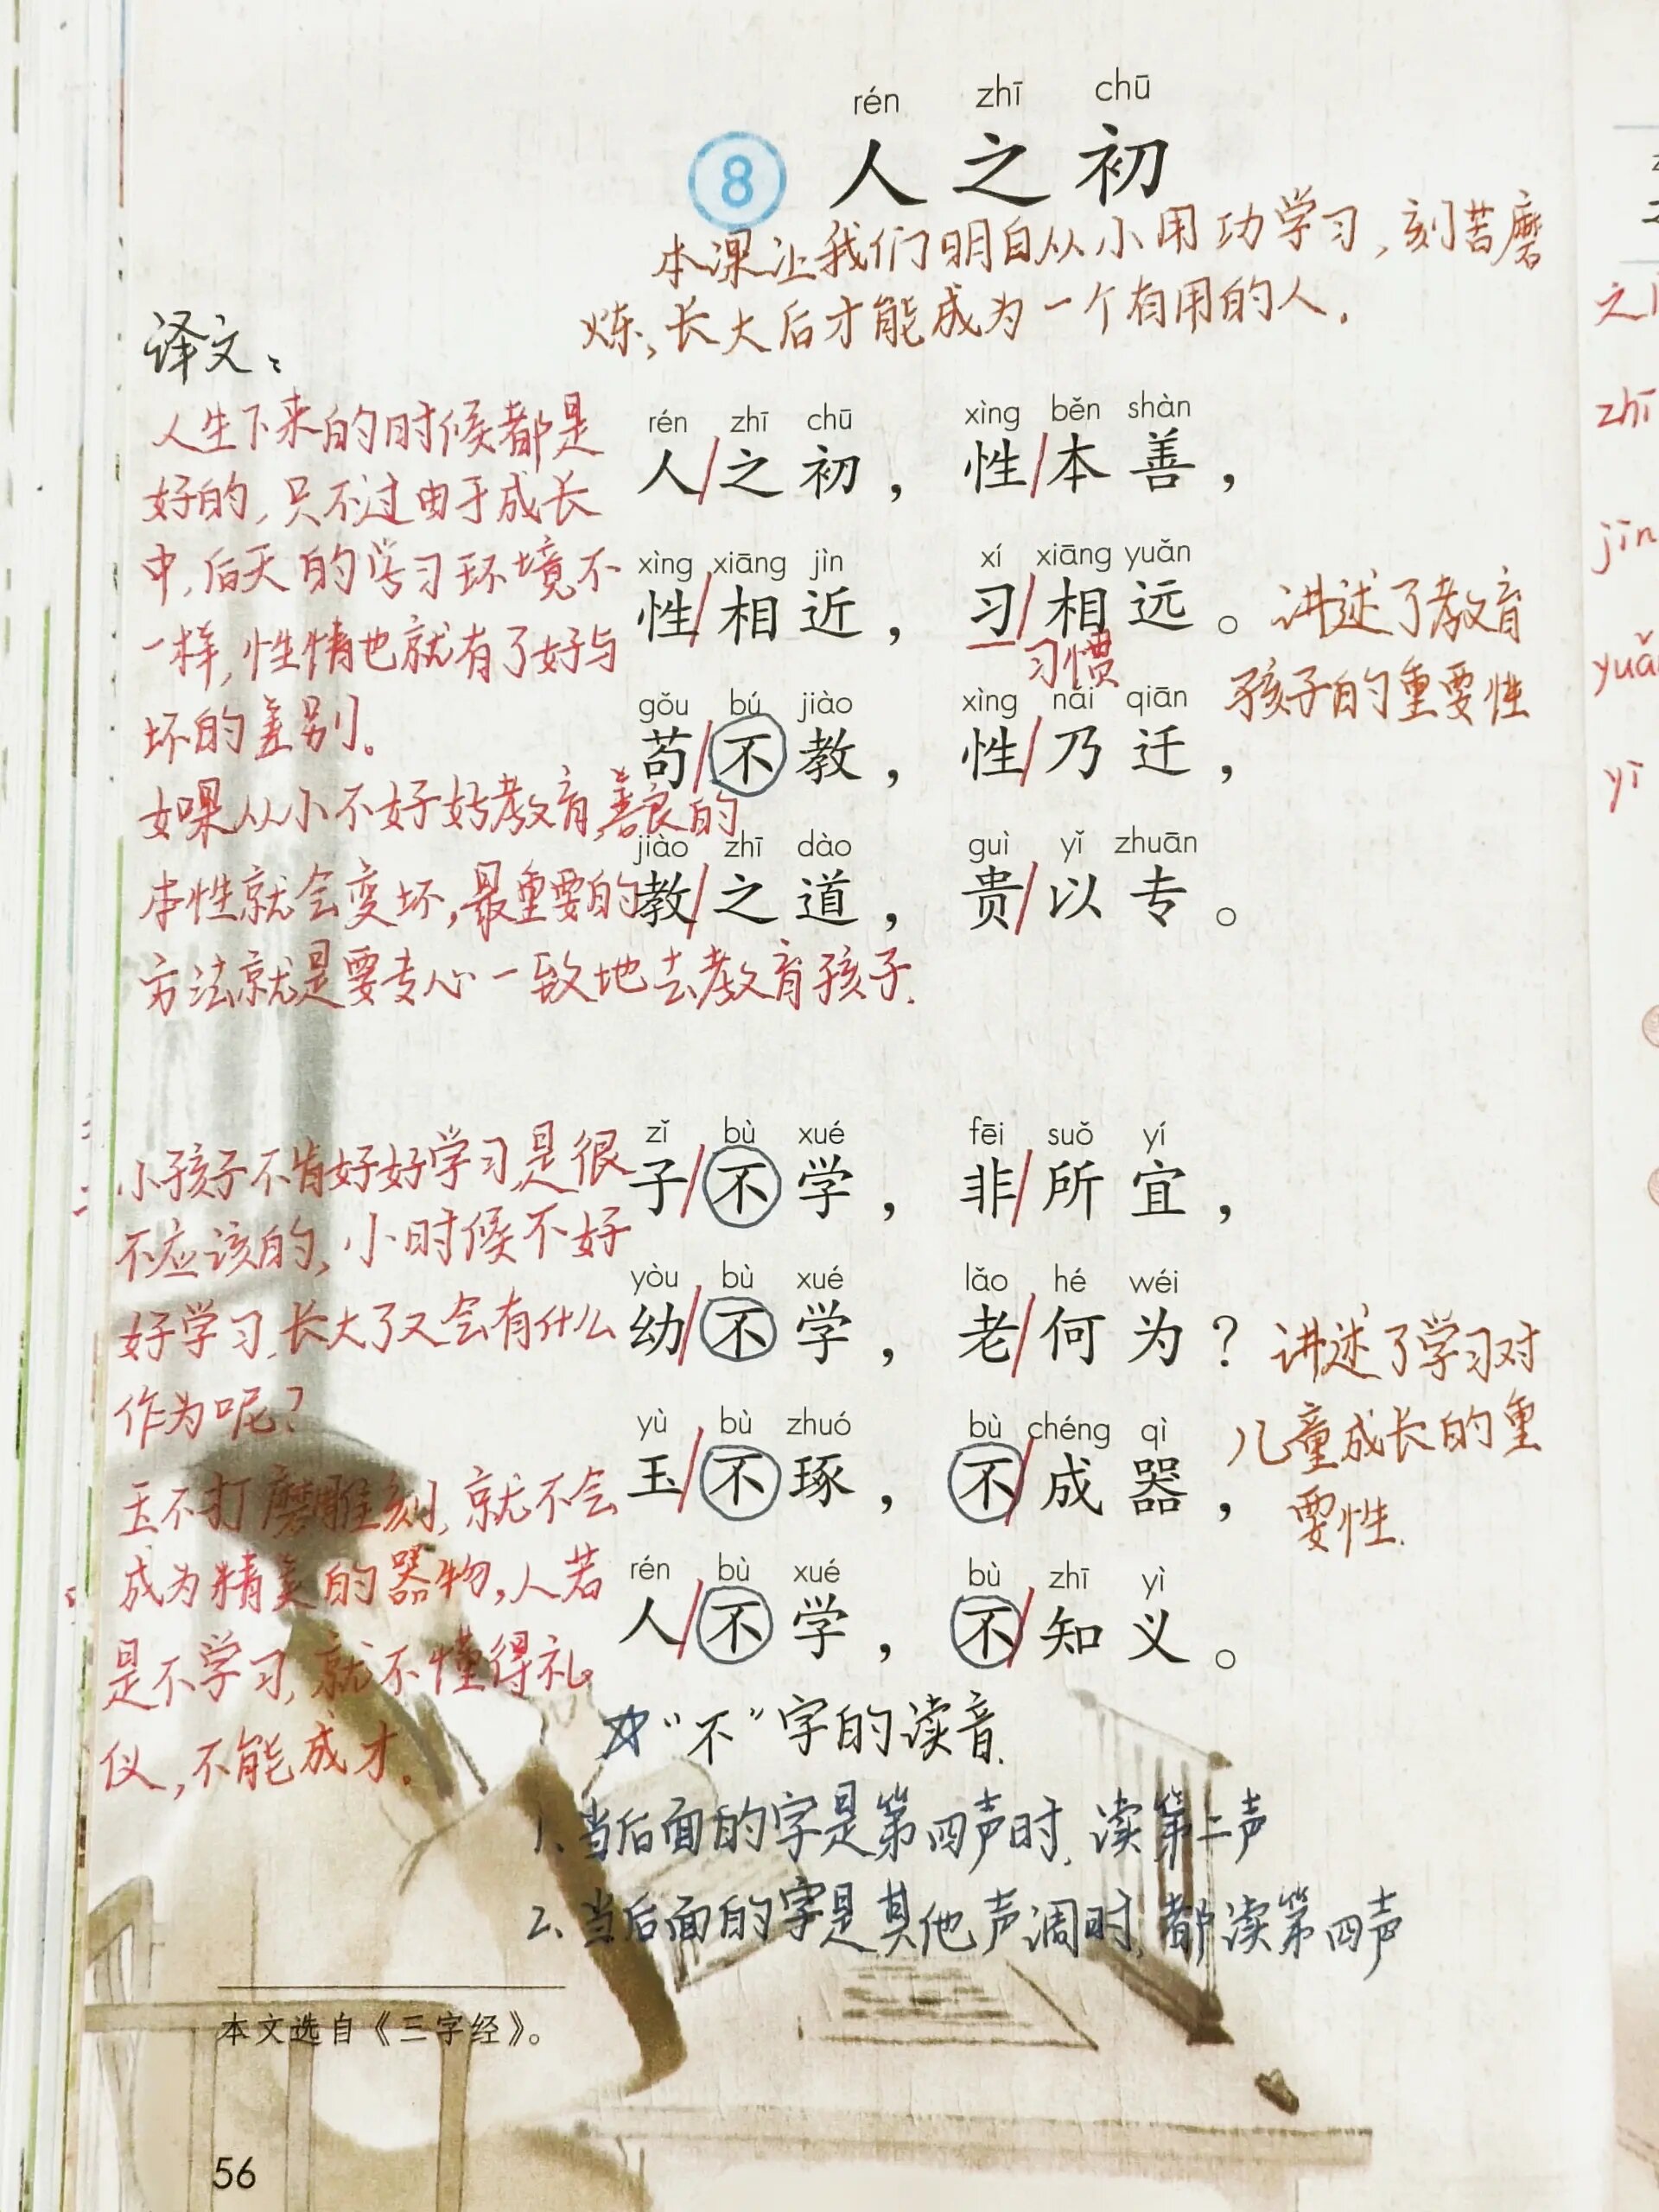 rén zhī chū
8 人之初
本课让我们明白从小用功学习，刻苦磨
炼，长大后才能成为一个有用的人。
译文：
人生下来的时候都是
好的，只不过由于成长
中，后天的学习环境不
一样，性情也就有了好与
坏的差别。
如果从小不好好教育，善良的
本性就会变坏，最重要的
方法就是要专心一致地去教育孩子.
rén zhī chū xìng běn shàn
人/之初，性/本善，
xìng xiāng jìn xí xiāng yuǎn
性/相近，习/相远。
习惯
讲述了教育
孩子的重要性
gǒu bú jiào xìng nǎi qiān
苟/不教，性/乃迁，
jiào zhī dào guì yǐ zhuān
教/之道，贵/以专。
小孩子不肯好好学习,是很
不应该的，小时候不好
好学习,长大了又会有什么
作为呢？
玉不打磨雕刻，就不会
成为精美的器物，人若
是不学习，就不懂得礼
仪，不能成才.
zǐ bù xué fēi suǒ yí
子/不学，非/所宜，
yòu bù xué lǎo hé wéi
幼/不学，老/何为？
yù bù zhuó bù chéng qì
玉/不琢，不/成器，
rén bù xué bù zhī yì
人/不学，不/知义。
讲述了学习对
儿童成长的重
要性.
☆“不”字的读音.
1、当后面的字是第四声时，读第二声
2、当后面的字是其他声调时，都读第四声
本文选自《三字经》。
56
zhī
jìn
yuǎ
yǐ